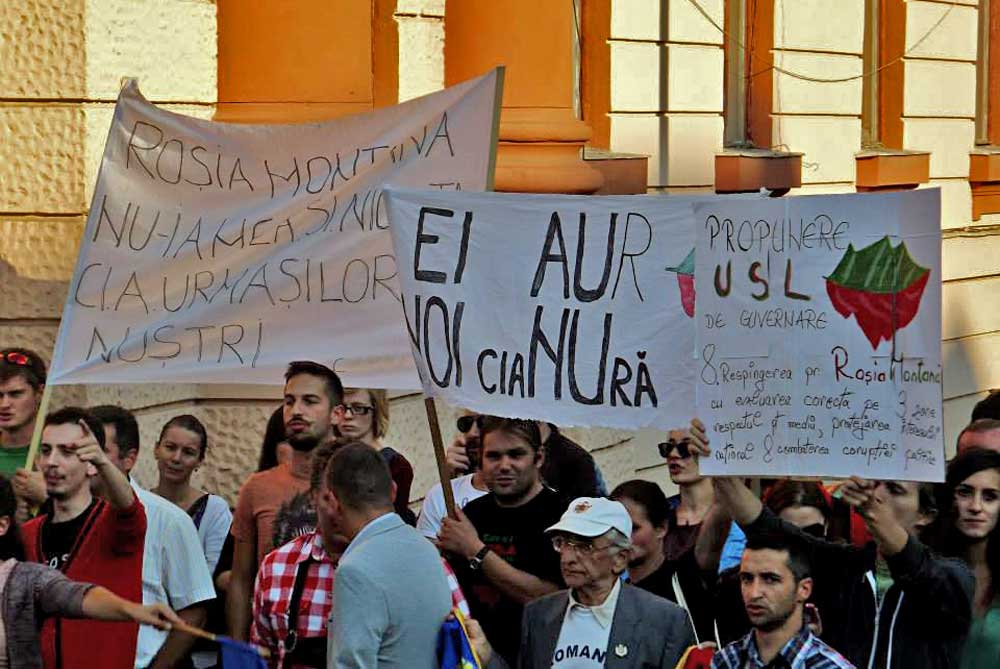 ROȘIA MONTANA
NU-I A MEA ȘI NICI
CI A URMAȘILOR
NUȘTRI
EI AUR
NOI CIANURĂ
PROPUNERE
USL
DE GUVERNARE
8. Respingerea pr. Roșia Montană
cu evaluarea corectă pe 3 zone
respectul mediu, protejarea interesului
național & combaterea corupției
ROMAN